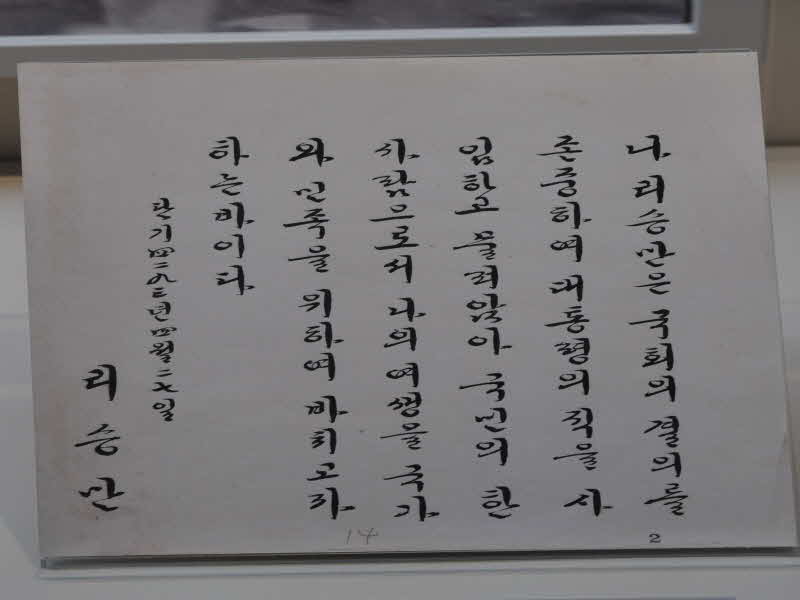 나 리승만은 국회의 결의를
존중하여 대통령의 직을 사
임하고 물러앉아 국민의 한
사람으로서 나의 여생을 국가
와 민족을 위하여 바치고자
하는 바이다
단기四二九三년四월二七일
리승만
14
2